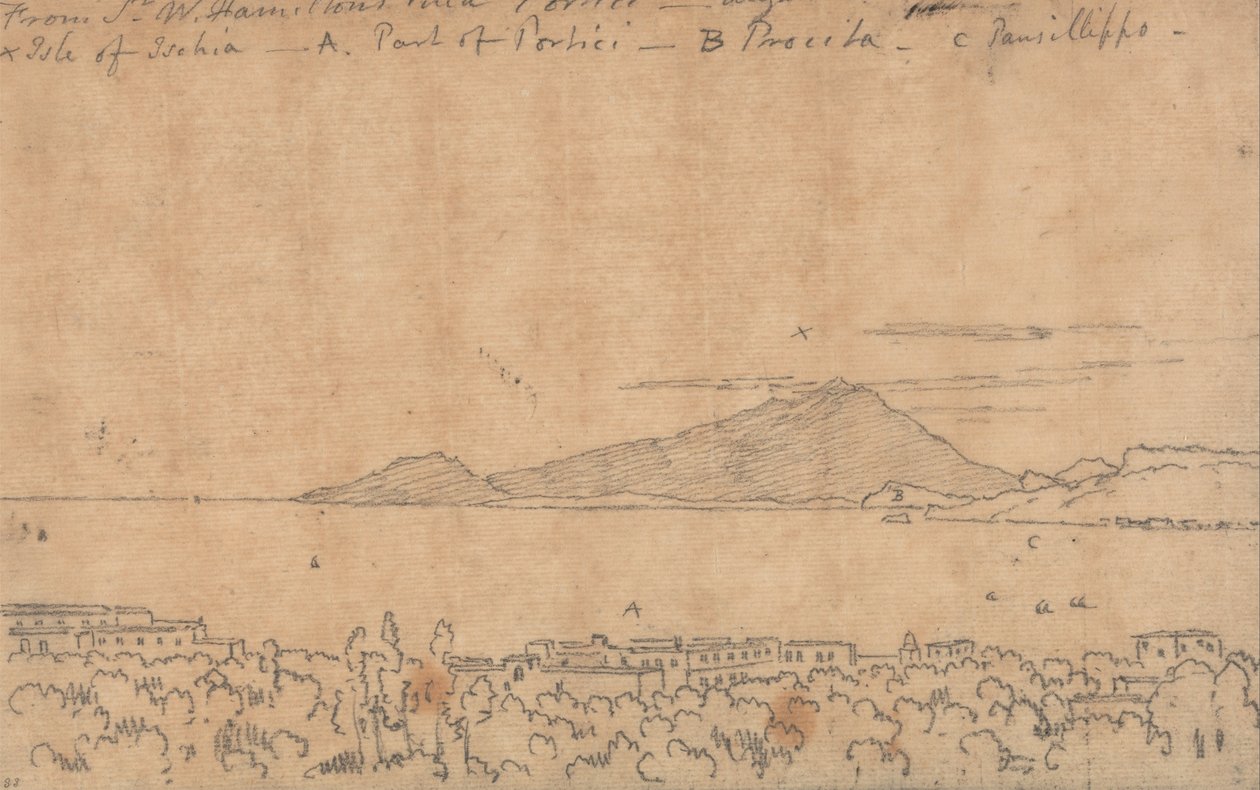 From Sr. W. Hamiltons Villa Portici —
x Isle of Ischia — A. Part of Portici — B Procita - C Pausillippo -
x
B
C
A
88